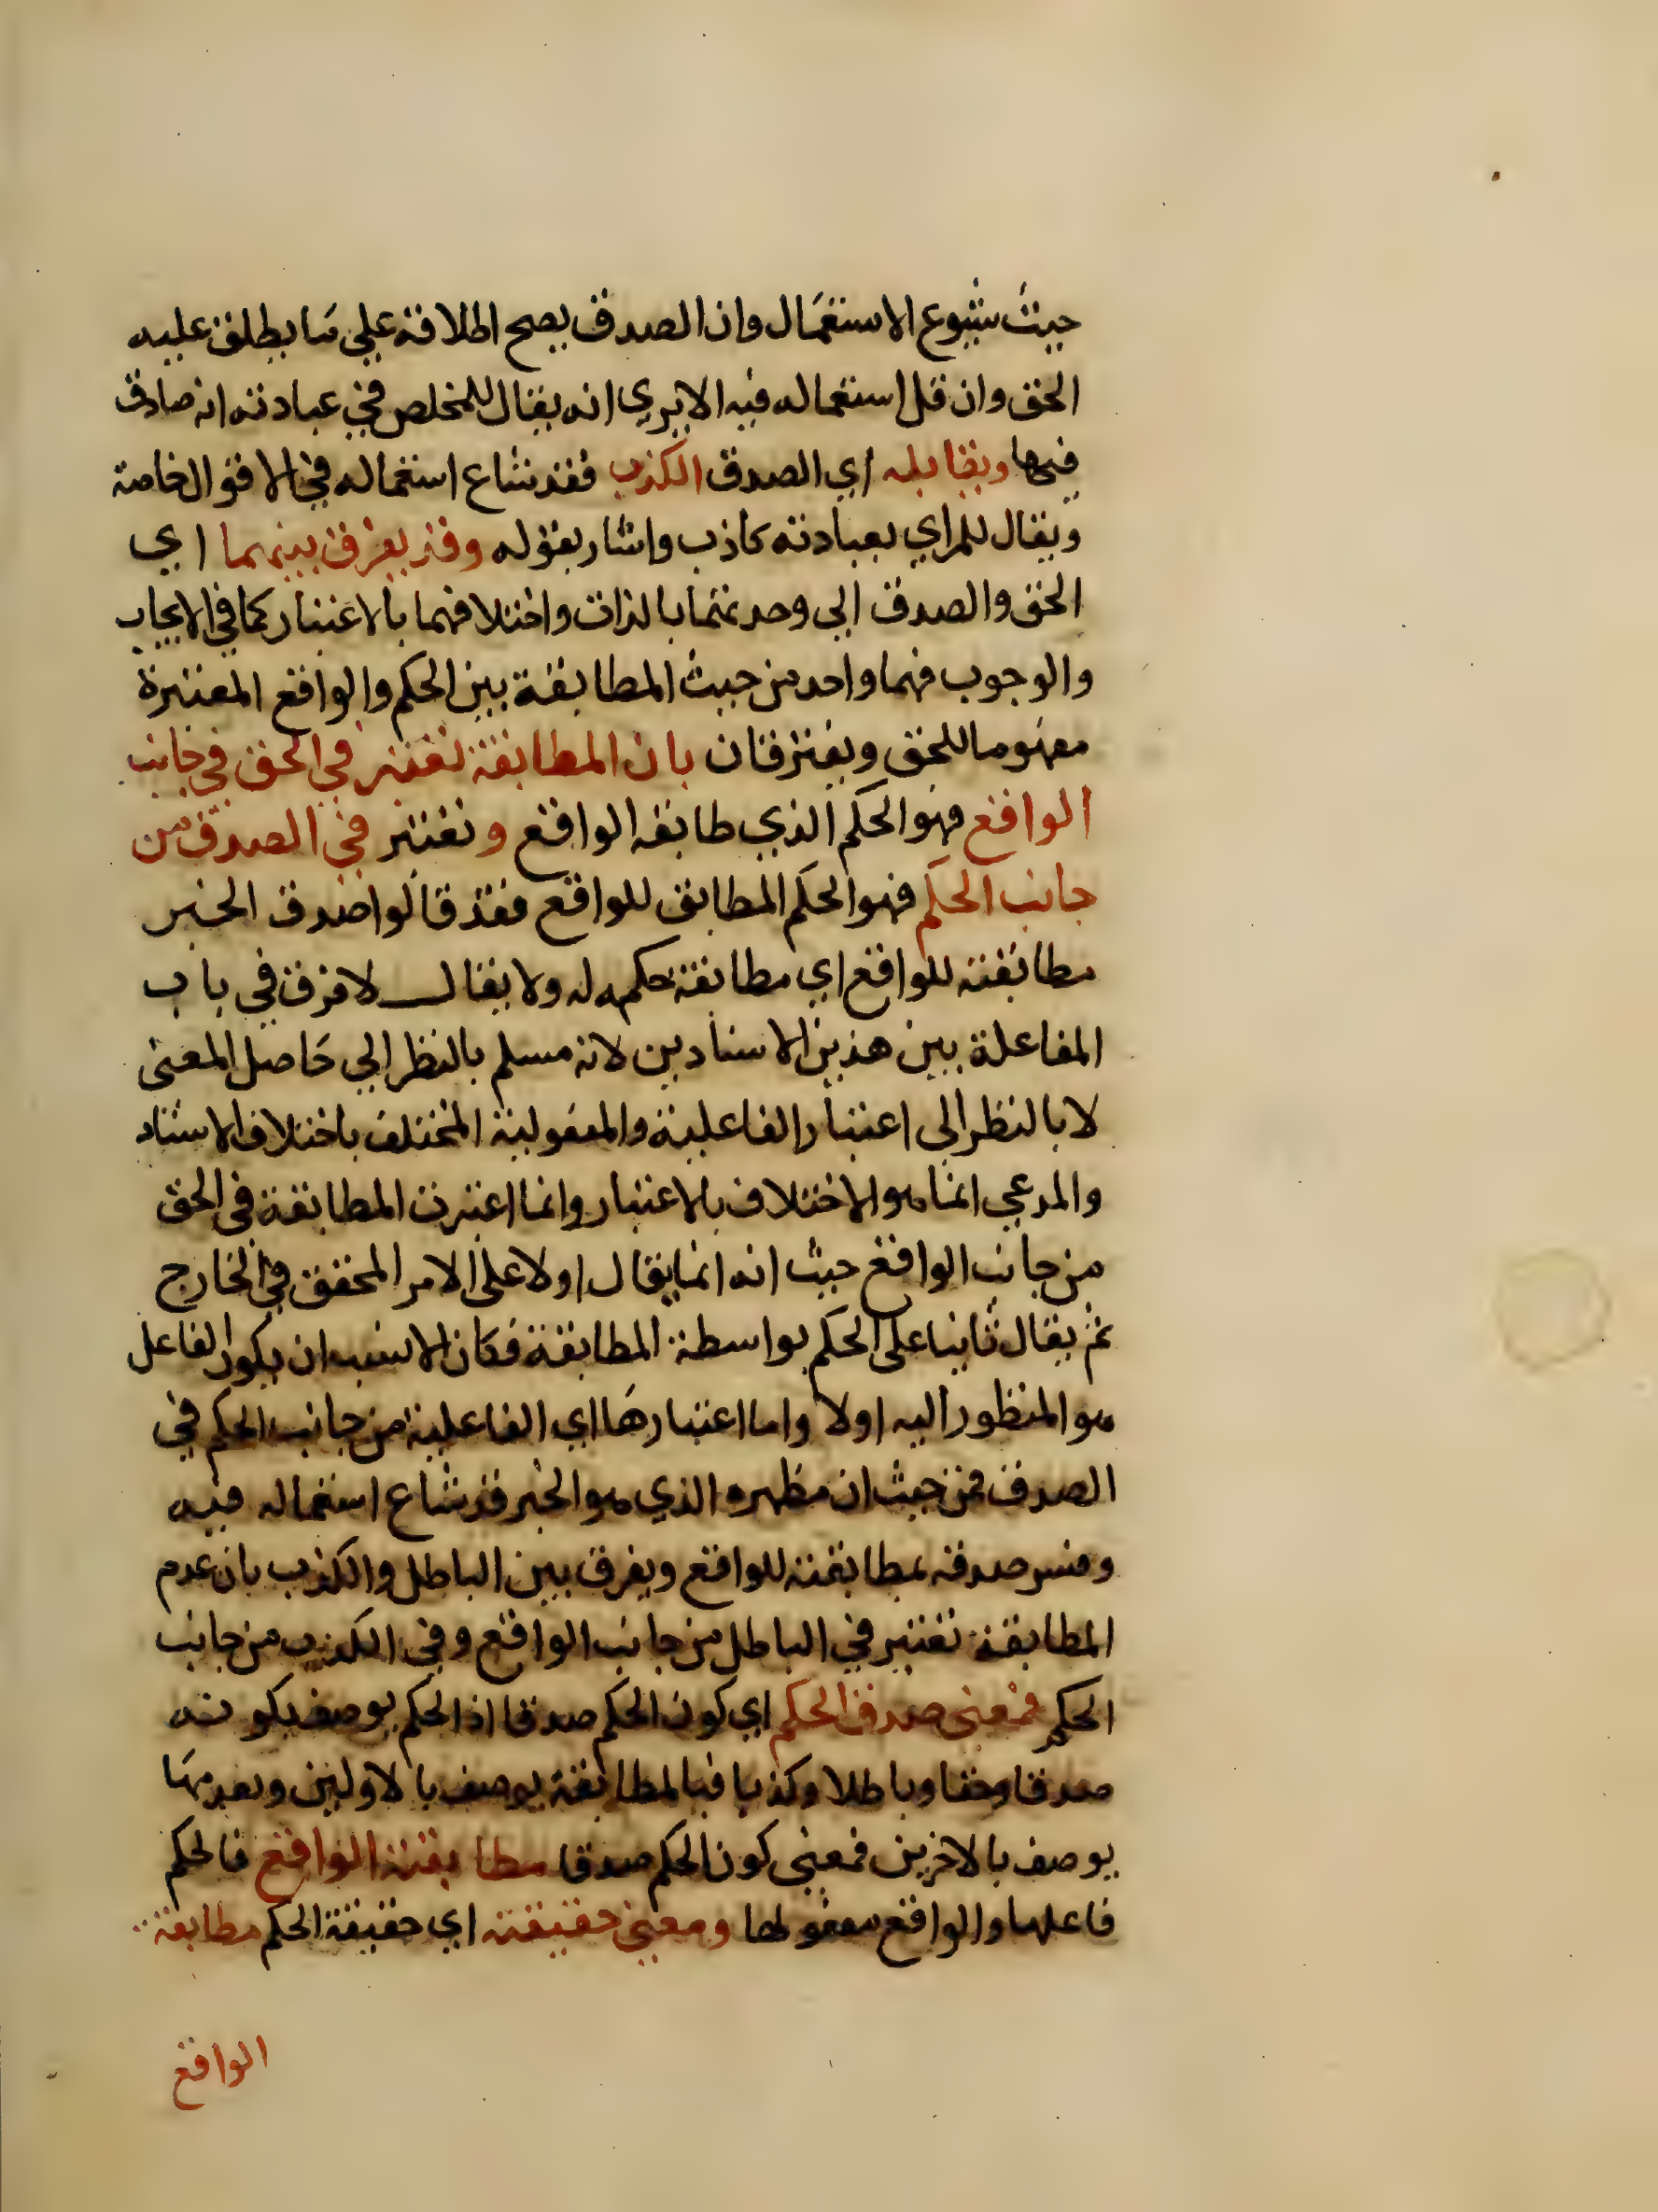 حيث شيوع الاستعمال وان الصدق يصح اطلاقه علي ما يطلق عليه
الحق وان قل استعماله فيه الا يري انه يقال للمخلص في عبادته انه صادق
فيها ويقابله اي الصدق الكذب فقد شاع استعماله في الاقوال خاصة
ويقال للمراي بعبادته كاذب واشار بقوله وقد يفرق بينهما اي
الحق والصدق الي وحدتهما بالذات واختلافهما بالاعتبار كما في الايجاب
والوجوب فهما واحد من حيث المطابقة بين الحكم والواقع المعتبرة
مفهوما للحق ويفترقان بان المطابقة تعتبر في الحق في جانب
الواقع فهو الحكم الذي طابقه الواقع وتعتبر في الصدق من
جانب الحكم فهو الحكم المطابق للواقع فقد قالوا صدق الخبر
مطابقته للواقع اي مطابقة حكمه له ولا يقال لا فرق في باب
المفاعلة بين هذين الاسنادين لانه مسلم بالنظر الي حاصل المعني
لا بالنظر الي اعتبار الفاعلية والمفعولية المختلف باختلاف الاسناد
والمدعي انما هو الاختلاف بالاعتبار وانما اعتبرت المطابقة في الحق
من جانب الواقع حيث انه انما يقال اولا علي الامر المحقق في الخارج
ثم يقال ثانيا علي الحكم بواسطة المطابقة فكان الانسب ان يكون الفاعل
هو المنظور اليه اولا واما اعتبارها اي الفاعلية من جانب الحكم في
الصدق فمن حيث ان مظهره الذي هو الخبر قد شاع استعماله فيه
وفسر صدقه بمطابقته للواقع ويفرق بين الباطل والكذب بان عدم
المطابقة تعتبر في الباطل من جانب الواقع وفي الكذب من جانب
الحكم فمعني صدق الحكم اي كون الحكم صدقا اذ الحكم يوصف بكونه
صدقا وحقا وباطلا وكذبا فبالمطابقة يوصف بالاولين وبعدمها
يوصف بالاخرين فمعني كون الحكم صدقا مطابقته الواقع فالحكم
فاعلها والواقع مفعولها ومعني حقيقته اي حقيقة الحكم مطابقة
الواقع